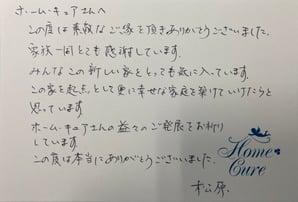 ホーム・キュアさんへ
この度は素敵なご縁を頂きありがとうございました。
家族一同とても感謝しています。
みんなこの新しい家をとっても気に入っています。
この家を起点として更に幸せな家庭を築けていけたらと
思っています
ホームキュアさんの益々のご発展をお祈り
しています
この度は本当にありがとうございました。
Home
Cure
松原